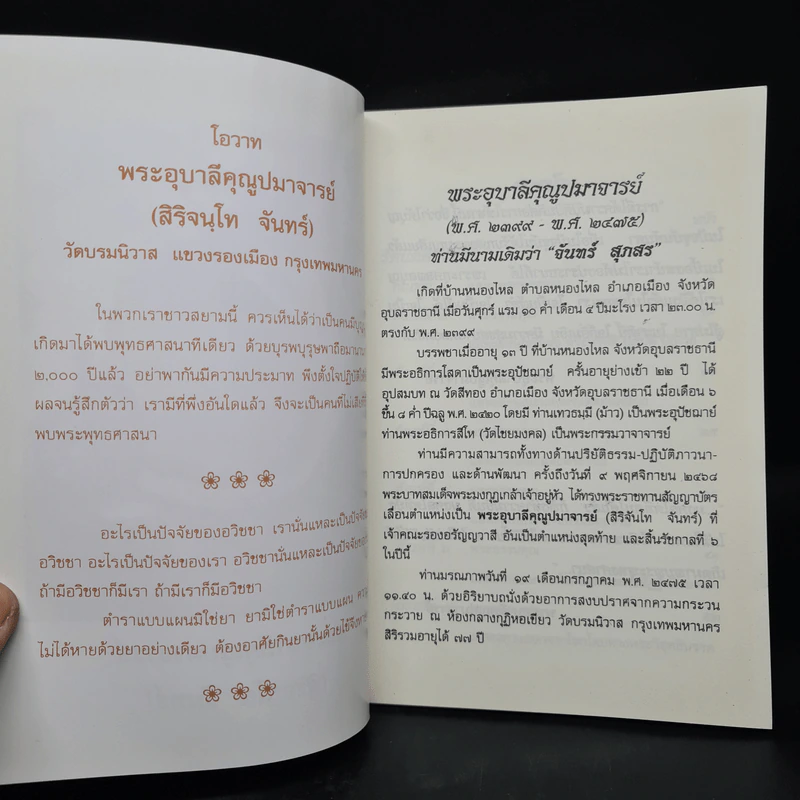 โอวาท
พระอุบาลีคุณูปมาจารย์
(สิริจนฺโท จันทร์)
วัดบรมนิวาส แขวงรองเมือง กรุงเทพมหานคร
ในพวกเราชาวสยามนี้ ควรเห็นได้ว่าเป็นคนมีบุญ
เกิดมาได้พบพุทธศาสนาทีเดียว ด้วยบุรพบุรุษพาถือมานาน
๒,๐๐๐ ปีแล้ว อย่าพากันมีความประมาท พึงตั้งใจปฏิบัติ
ผลจนรู้สึกตัวว่า เรามีที่พึ่งอันใดแล้ว จึงจะเป็นคนที่ไม่เสียที
พบพระพุทธศาสนา
อะไรเป็นปัจจัยของอวิชชา เรานั่นแหละเป็นปัจจัย
อวิชชา อะไรเป็นปัจจัยของเรา อวิชชานั่นแหละเป็นปัจจัย
ถ้ามีอวิชชาก็มีเรา ถ้ามีเราก็มีอวิชชา
ตำราแบบแผนมิใช่ยา ยามิใช่ตำราแบบแผน
ไม่ได้หายด้วยยาอย่างเดียว ต้องอาศัยกินยานั้นด้วยไข้จึง
พระอุบาลีคุณูปมาจารย์
(พ.ศ. ๒๓๙๙ - พ.ศ. ๒๔๗๕)
ท่านมีนามเดิมว่า "จันทร์ สุภสร"
เกิดที่บ้านหนองไหล ตำบลหนองไหล อำเภอเมือง จังหวัด
อุบลราชธานี เมื่อวันศุกร์ แรม ๑๐ ค่ำ เดือน ๕ ปีมะโรง เวลา ๒๓.๐๐ น.
ตรงกับ พ.ศ. ๒๓๙๙
บรรพชาเมื่ออายุ ๑๓ ปี ที่บ้านหนองไหล จังหวัดอุบลราชธานี
มีพระอธิการโสดาเป็นพระอุปัชฌาย์ ครั้นอายุย่างเข้า ๒๒ ปี ได้
อุปสมบท ณ วัดสีทอง อำเภอเมือง จังหวัดอุบลราชธานี เมื่อเดือน ๖
ขึ้น ๘ ค่ำ ปีฉลู พ.ศ. ๒๔๒๐ โดยมี ท่านเทวธมฺมี (ม้าว) เป็นพระอุปัชฌาย์
ท่านพระอธิการสีโห (วัดไชยมงคล) เป็นพระกรรมวาจาจารย์
ท่านมีความสามารถทั้งทางด้านปริยัติธรรม-ปฏิบัติภาวนา-
การปกครอง และด้านพัฒนา ครั้งถึงวันที่ ๙ พฤศจิกายน ๒๔๖๘
พระบาทสมเด็จพระมงกุฎเกล้าเจ้าอยู่หัว ได้ทรงพระราชทานสัญญาบัตร
เลื่อนตำแหน่งเป็น พระอุบาลีคุณูปมาจารย์ (สิริจันโท จันทร์) ที่
เจ้าคณะรองอรัญญวาสี อันเป็นตำแหน่งสุดท้าย และสิ้นรัชกาลที่ ๖
ในปีนี้
ท่านมรณภาพวันที่ ๑๙ เดือนกรกฎาคม พ.ศ. ๒๔๗๕ เวลา
๑๑.๔๐ น. ด้วยอิริยาบถนั่งด้วยอาการสงบปราศจากความกระวน
กระวาย ณ ห้องกลางกุฏิหอเขียว วัดบรมนิวาส กรุงเทพมหานคร
สิริรวมอายุได้ ๗๗ ปี